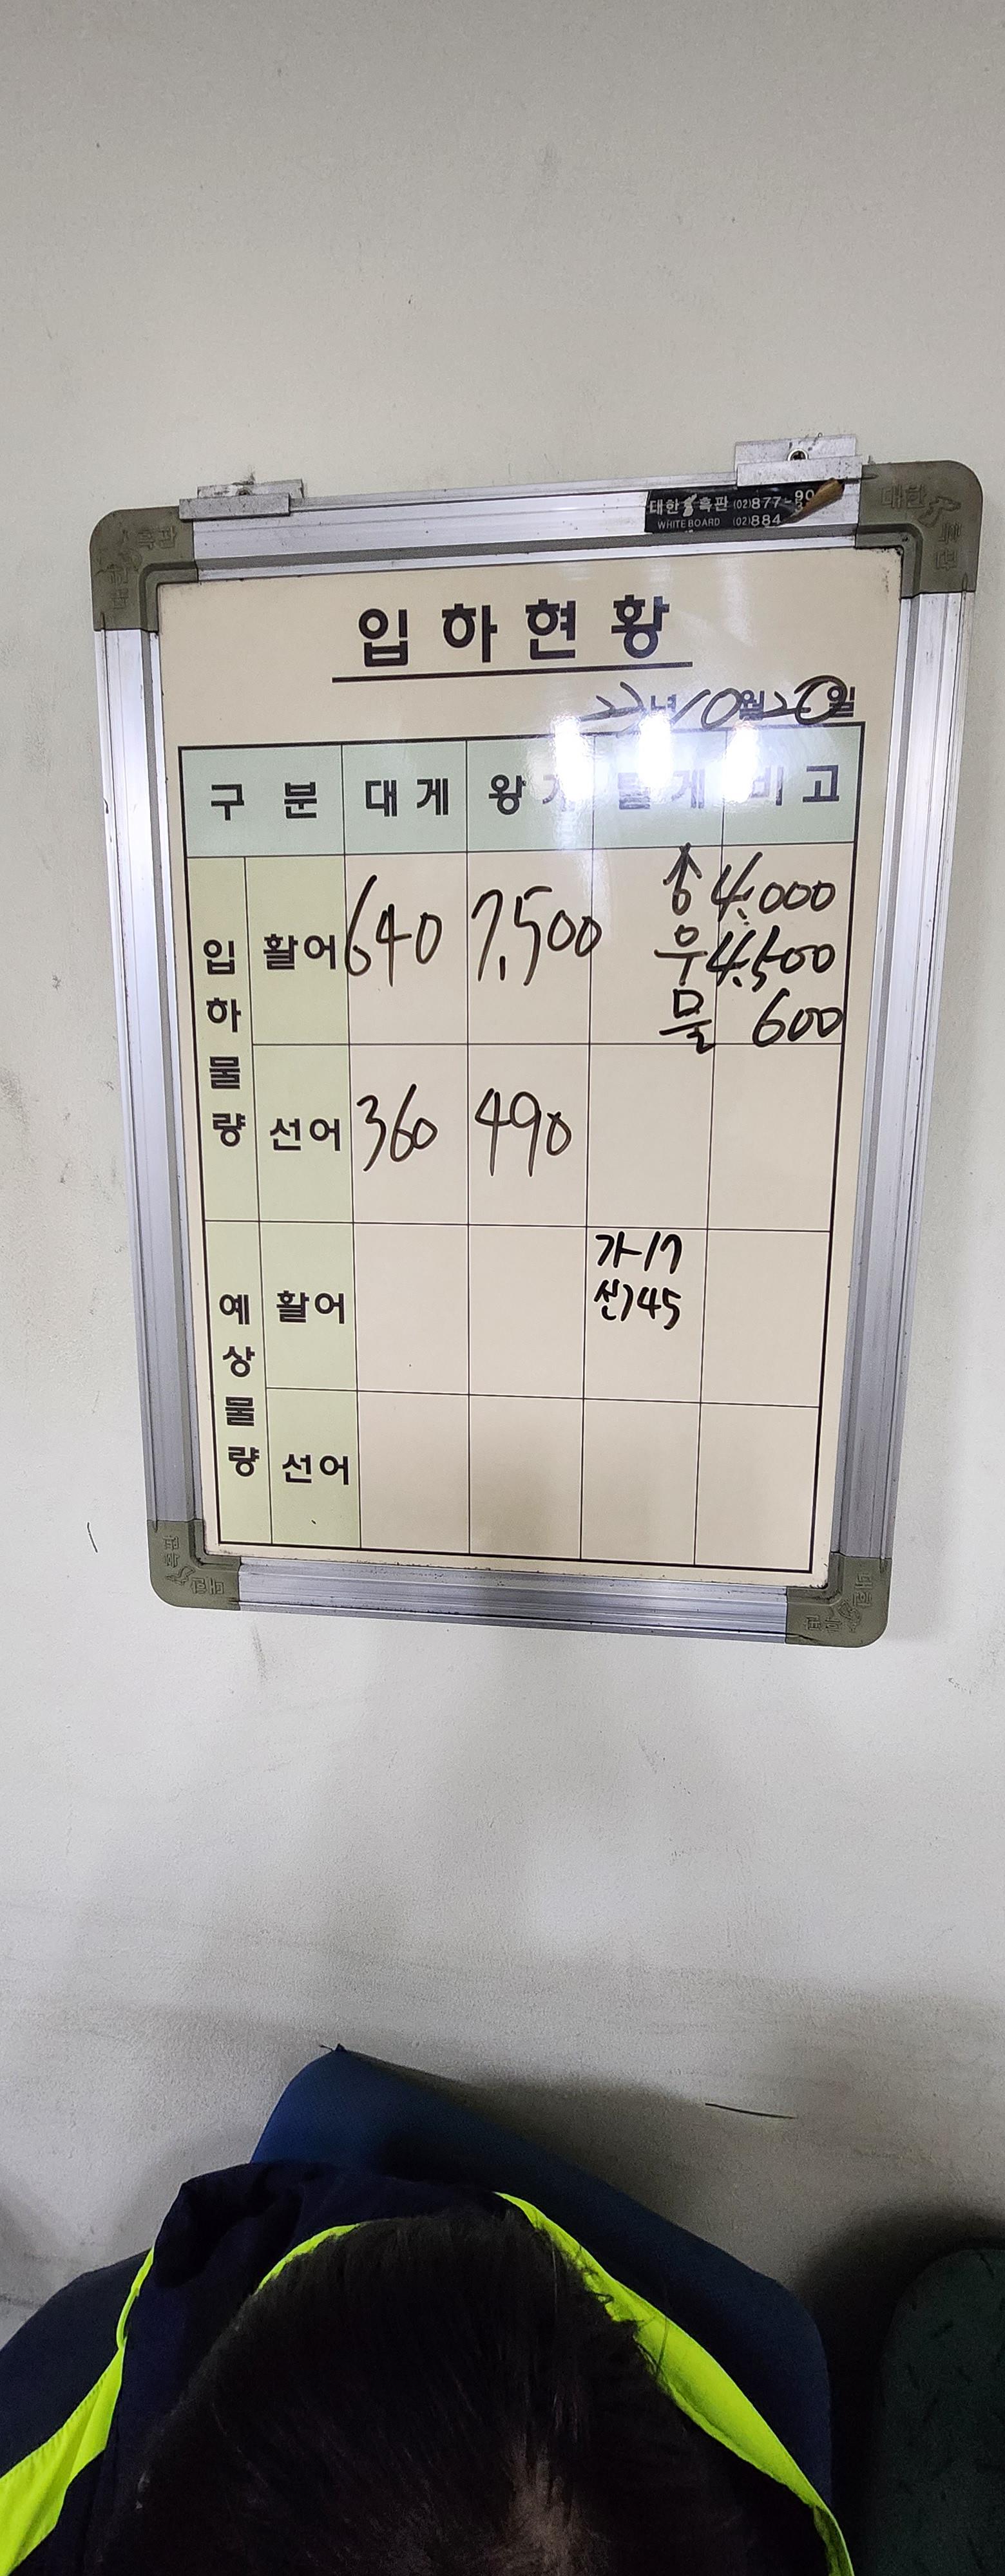 대한 흑판 (02)877-90
WHITE BOARD (02)884
입하현황
22년 10월 20일
구 분 대게 왕게 털게 비고
입하물량 활어 640 7,500
숭 4,000
우 4,500
물 600
선어 360 490
예상물량 활어
가-17
선)45
선어